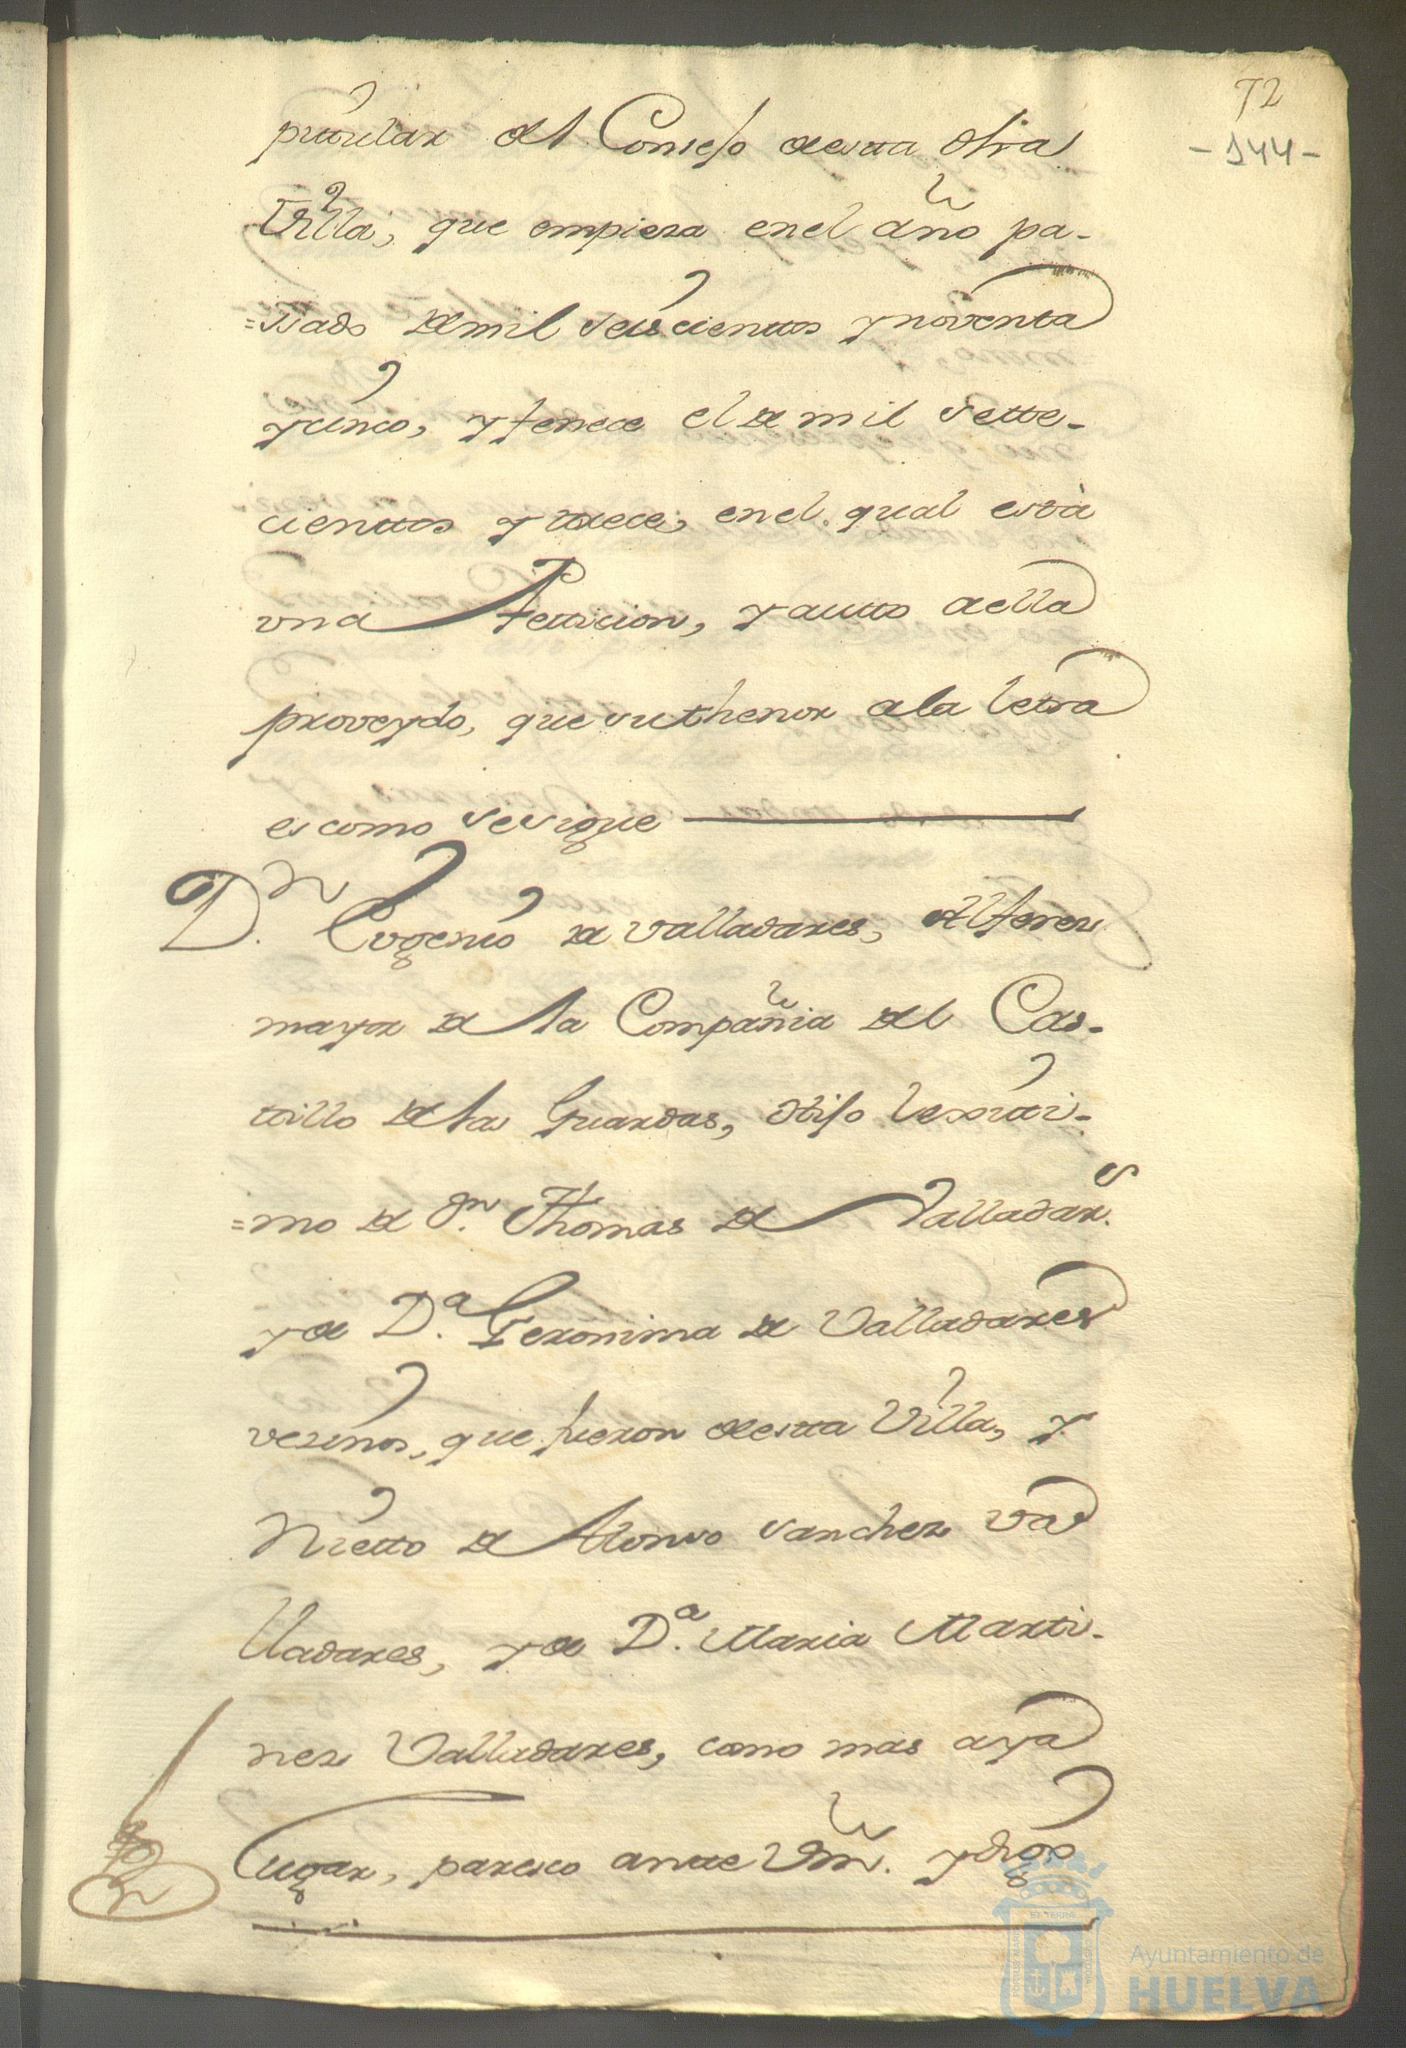 72
- 144 -
pitular del Consejo desta dha
Villa, que empieza en el año pa-
=ssado de mil seiscientos y noventa
y cinco, y fenece el de mil sette-
cientos y trece, en el qual està
vna Petticion, y autto a ella
proveydo, que su thenor a la letra
es como se sigue
Dn. Eugenio de Valladares, Alferez
mayor de la Compañia del Cas-
tillo de las Guardas, hijo lexiti-
=mo de Dn. Thomas de Valladar.es
y de D.a Geronima de Valladares
vezinos, que fueron desta Villa, y
Nietto de Alonso Sanchez Va
lladares, y de D.a Maria Marti-
nez Valladares, como mas aya
lugar, paresco antte Vm. y digo
Ayuntamiento de
HUELVA